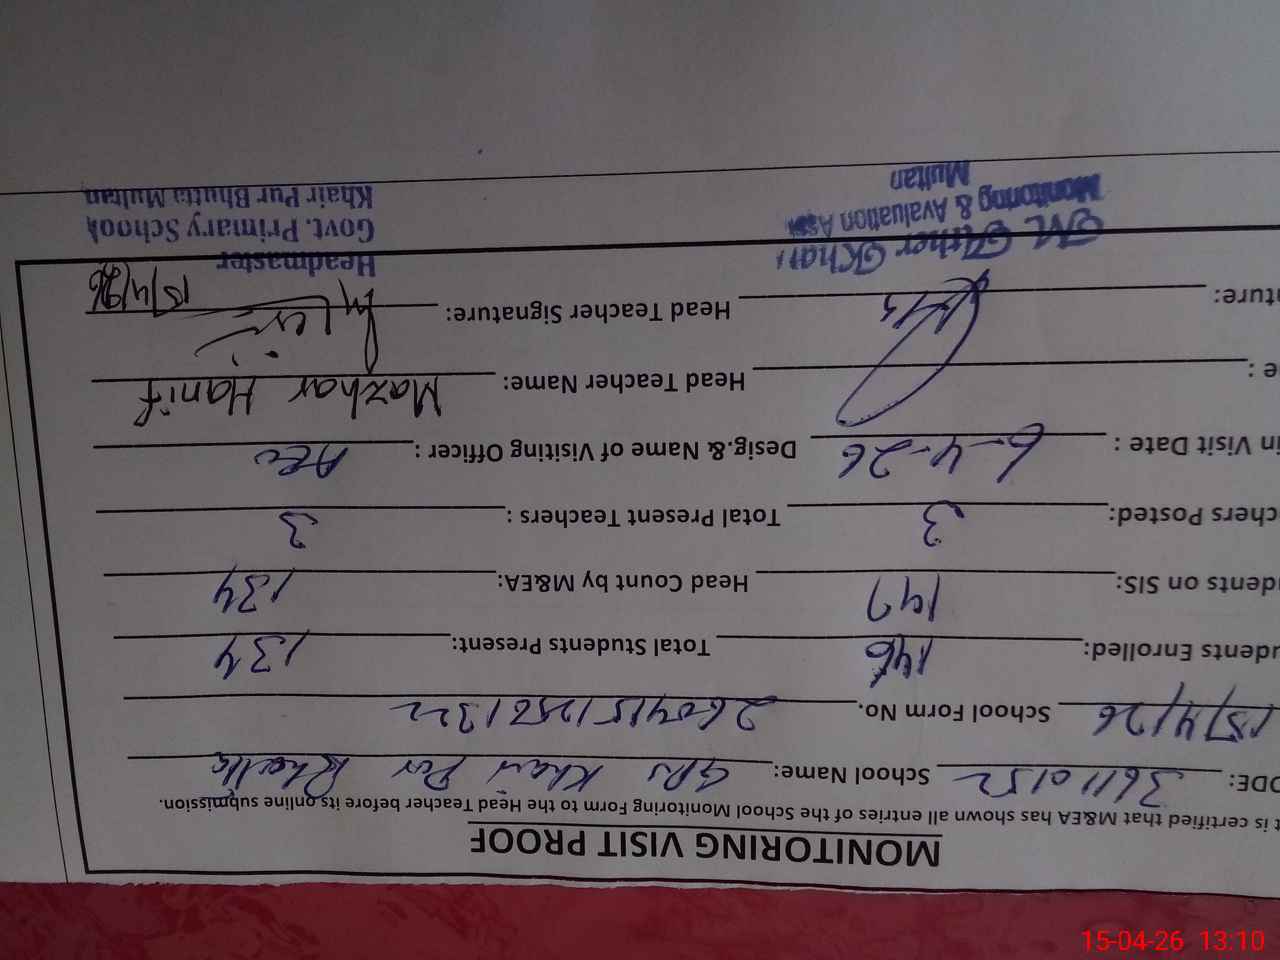 MONITORING VISIT PROOF
t is certified that M&EA has shown all entries of the School Monitoring Form to the Head Teacher before its online submission.
ODE: 36110152 School Name: GPS Khair Pur Bhutta
15/4/26 School Form No. 26041512561322
udents Enrolled: 146 Total Students Present: 134
udents on SIS: 147 Head Count by M&EA: 134
chers Posted: 3 Total Present Teachers : 3
in Visit Date : 6-4-26 Desig.& Name of Visiting Officer : AEO
e : Head Teacher Name: Mazhar Hanif
ture: Head Teacher Signature: 15/4/26
M. Ather Khan
Monitoring & Avaluation Ass
Multan
Headmaster
Govt. Primary School
Khair Pur Bhutta Multan
15-04-26 13:10